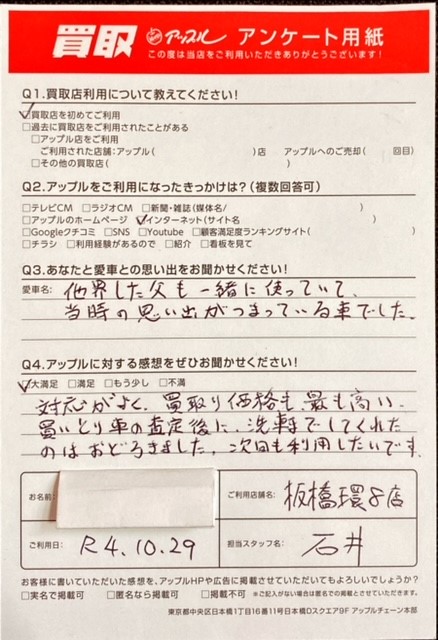 買取 アップル アンケート用紙
この度は当店をご利用いただきありがとうございます!
Q1.買取店利用について教えてください!
☑買取店を初めてご利用
□過去に買取店をご利用されたことがある
□アップル店をご利用
ご利用された店舗:アップル( )店 アップルへのご売却( 回目)
□その他の買取店( )
Q2.アップルをご利用になったきっかけは?(複数回答可)
□テレビCM □ラジオCM □新聞・雑誌(媒体名/ )
□アップルのホームページ ☑インターネット(サイト名 )
□Googleクチコミ □SNS □Youtube □顧客満足度ランキングサイト( )
□チラシ □利用経験があるので □紹介 □看板を見て
Q3.あなたと愛車との思い出をお聞かせください!
愛車名: 他界した父も一緒に使っていて、
当時の思い出がつまっている車でした。
Q4.アップルに対する感想をぜひお聞かせください!
☑大満足 □満足 □もう少し □不満
対応がよく、買取り価格も、最も高い。
買いとり車の査定後に、洗車までしてくれた
のはおどろきました。次回も利用したいです。
お名前: ご利用店舗名: 板橋環8店
ご利用日: R4.10.29 担当スタッフ名: 石井
お客様に書いていただいた感想を、アップルHPや広告に掲載させていただいてもよろしいでしょうか?
□実名で掲載可 □匿名なら掲載可 □掲載不可 ※ご記入がない場合は匿名での掲載とさせていただきます。
東京都中央区日本橋1丁目16番11号日本橋Dスクエア9F アップルチェーン本部